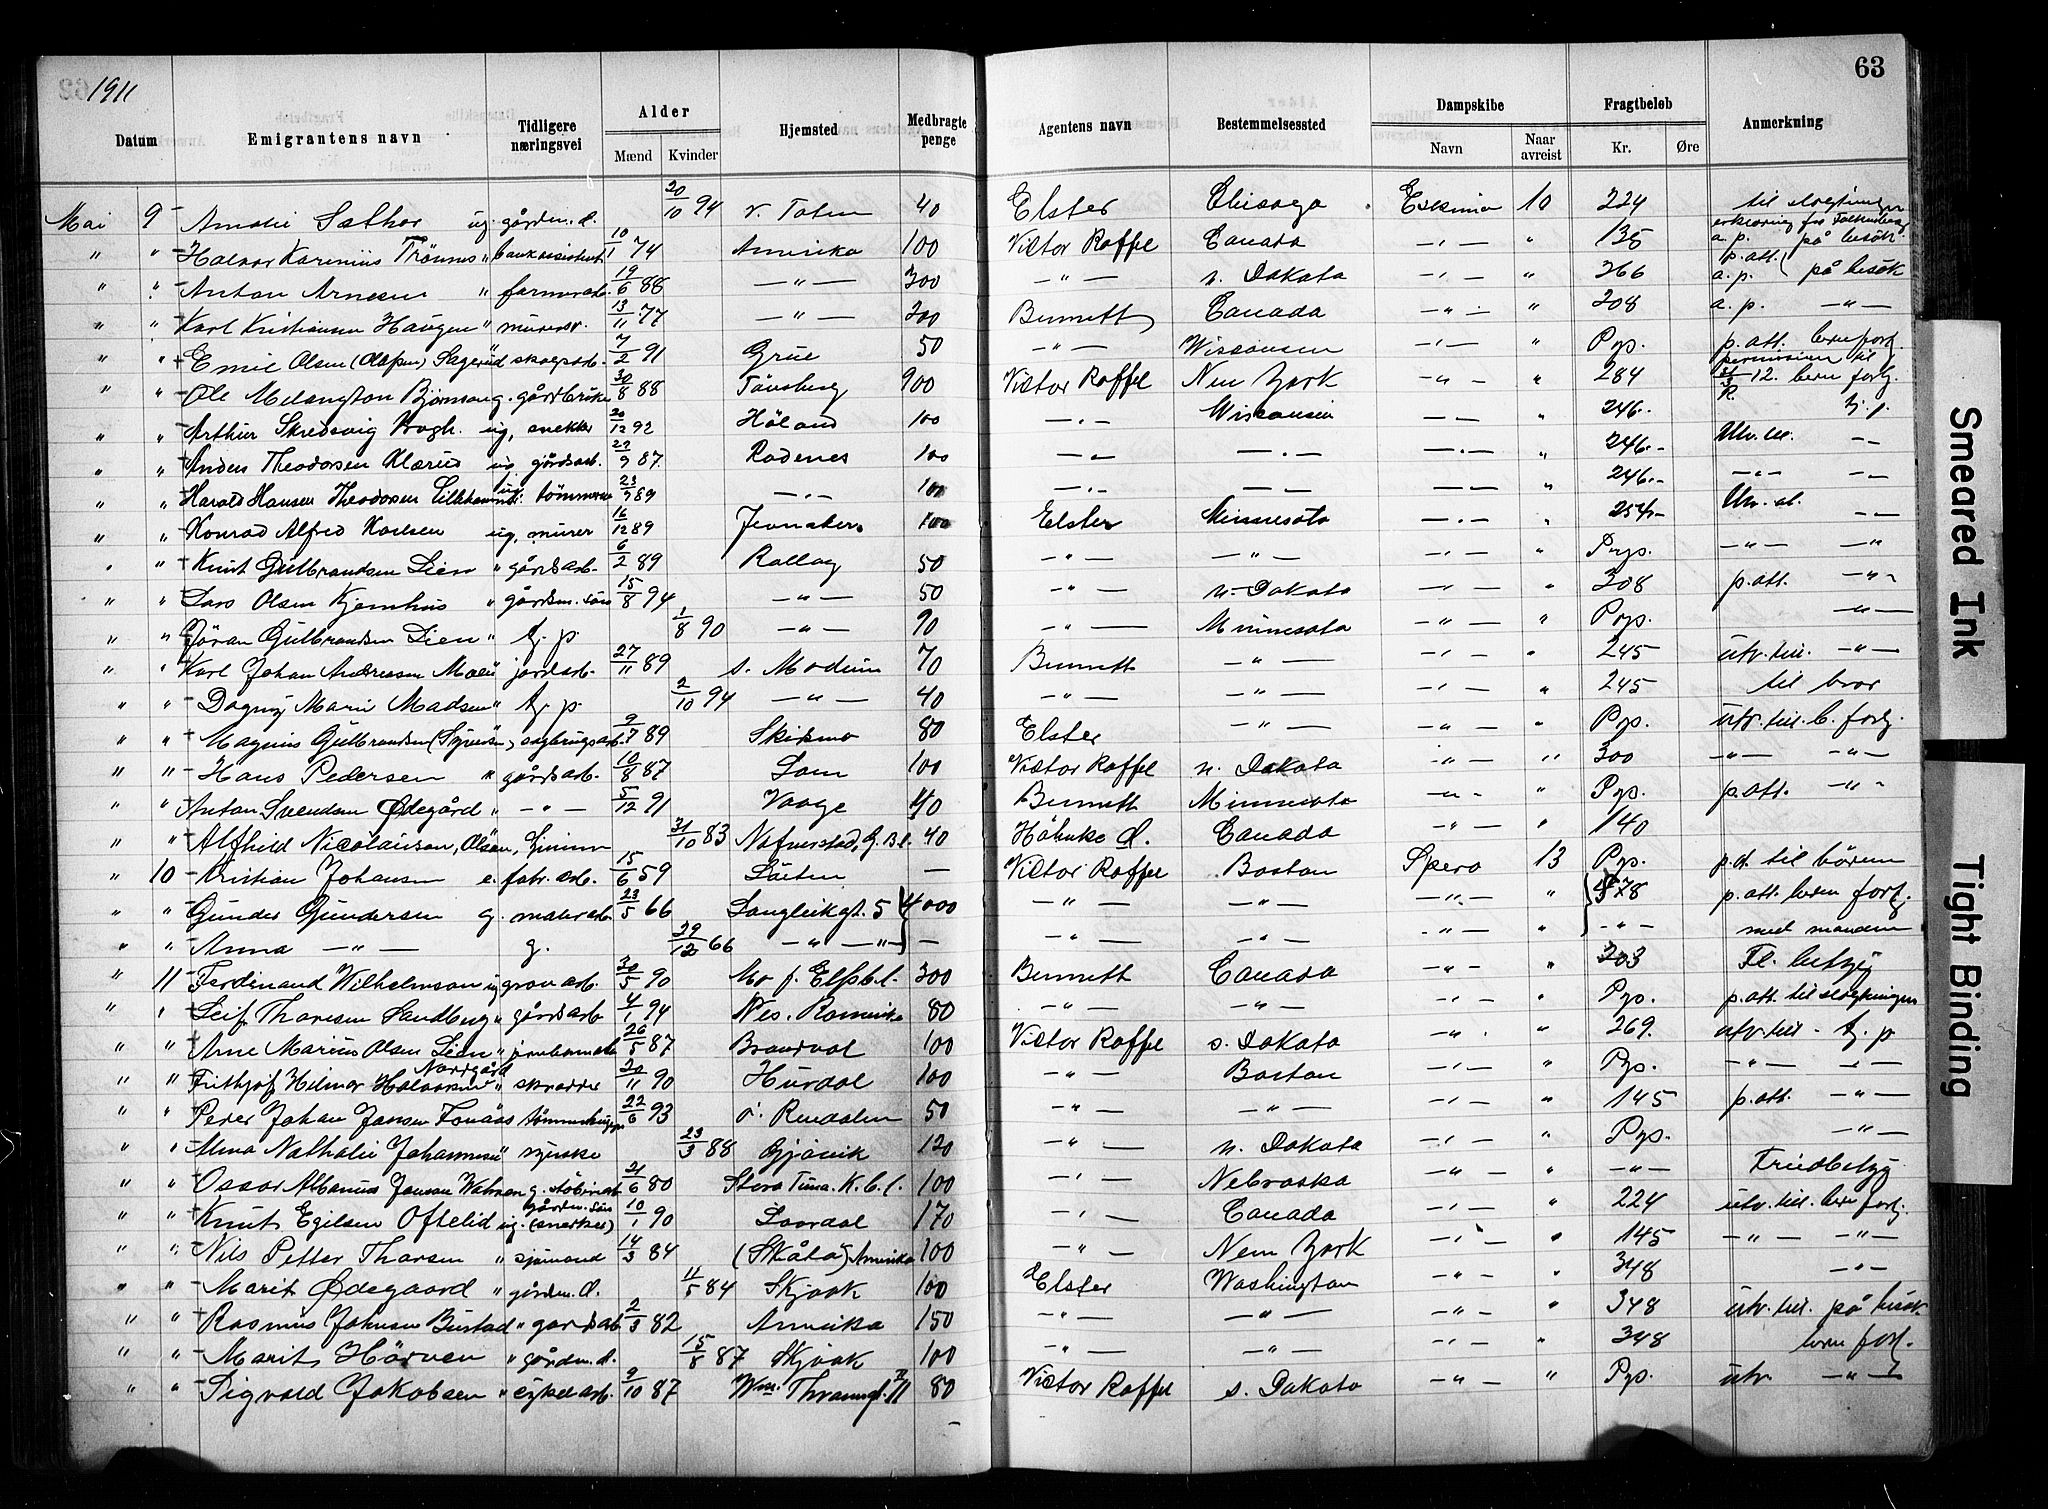 1911
63
Datum | Emigrantens navn | Tidligere næringsvei | Alder | Hjemsted | Medbragte penge | Agentens navn | Bestemmelsessted | Dampskibe | Fragtbeløb | Anmerkning
Mænd | Kvinder | Navn | Naar avreist | Kr. | Øre
Mai 9 Amalie Sæthor ug gårdm. d. 20/10 94 v. Toten 40 Elster Chicago Eskimo 10 224 til
" " Halvor Kareniüs Trönnes " bankassistent 10/1 74 Amerika 100 Victor Roffel Canada -"- " 135 a.p. på besök
" " Anton Arnesen " farmerarb. 19/6 88 -"- 300 -"- n. Dakota -"- " 266 a.p. på besök
" " Karl Kristiansen Haugen " murerarb. 13/11 77 -"- 200 Bennett Canada -"- " 208 a.p. -"-
" " Emil Olsen (Olafsen) Sagerud skogsarb. 7/2 91 Grue 50 -"- Wisconsin -"- " Pp. p.att. bern forf.
" " Ole Melangton Björnson g. gårdbruker 30/8 88 Tönsberg 900 Victor Roffel New York -"- " 284 12. bern forlg.
" " Arthur Skredsvig ug, snekker 20/12 92 Höland 100 -"- Wisconsin -"- " 246.- tj. p.
" " Anders Theodorsen ug gårdsarb. 22/9 87. Rödenes 100 -"- -"- -"- " 246.- Utv. til. -"-
" " Harald Hansen Theodorsen ug. tömmerm. 23/9 89 -"- 100 -"- -"- -"- " 246.- -"- -"-
" " Konrad Alfred Karlsen ug, murer 16/12 89 Jevnaker. 100 Elster Minnesota -"- " 254.- -"-
" " Knut Gulbrandsen Lien " gårdsarb. 6/2 89 Rollag 50 -"- -"- -"- " Pp. -"- -"-
" " Lars Olsen Kjemhus " gårdm. sön 15/8 94 -"- 50 -"- n. Dakota -"- " 208 p.att. -"-
" " Jöran Gulbrandsen Lien " tj. p. 1/8 90 -"- 90 -"- Minnesota -"- " Pp. -"-
" " Karl Johan Andreassen Moen jordarb. 27/11 89 s. Modum 70 Bennett -"- -"- " 245 utv. till. -"-
" " Dagny Marie Madsen " tj. p. 2/10 94 -"- 40 -"- -"- -"- " 245 til bror
" " Magnus Gulbrandsen sagbrugsarb. 9/7 89 Skiåmo 80 Elster -"- -"- " Pp. utv. till. b. forlg.
" " Hans Pedersen " gårdsarb. 10/8 87 Lom 100 Victor Roffel n. Dakota -"- " 300 -"- -"-
" " Anton Svendsen Ödegård " -"- 5/12 91 Vaage 40 Bennett Minnesota -"- " Pp. p.att. -"-
" " Alfhild Nicolaisen, Olsön, 31/10 83 G. Bl. 40 Höhnke d. Canada -"- " 140
" 10 Kristian Johansen e. fabr. arb. 15/6 59 Löiten — Victor Roffel Boston Spero 13 Pp. p.d til börnene
" " Gunder Gundersen g. malerarb. 23/5 66 Langleikgt. 5 4000 -"- -"- -"- " 578 p.att. bern forlg.
" " Anna -"- g. 29/12 66 -"- -"- — -"- -"- -"- " -"- med manden
" 11 Ferdinand Wilhelmson ug grovarb. 30/5 90 Mo f. Elfsb.l. 300 Bennett Canada -"- " 203 Fl. betyg
" " Leif Thoresen Sandberg " gårdsarb 4/1 94 Nes. Romerike 80 -"- -"- -"- " Pp. p.att. til slegtninger
" " Arne Marius Olsen Lien " jernbanearb. 26/5 87 Brandval 100 Victor Roffel s. Dakota -"- " 269. utv. till - tj. p
" " Frithjof Hilmar Halvorsen Nordgård " skrædder 20/11 90 Hurdal 100 -"- Boston -"- " Pp. -"- -"-
" " Peder Johan Jansen Fonåas tömmerhugger 22/6 93 ö. Rendalen 50 -"- -"- -"- " 145 p.att. -"-
" " Alma Nathalie Johannesen " syerske 23/3 88 Gjövik 120 -"- n. Dakota -"- " Pp. -"-
" " Oscar Albanius Janson Wahman g. stöberiarb. 21/6 80 Stora Tuna. K.b.l. 100 -"- Nebraska -"- " -"- Friedbetyg
" " Knut Egilsen Oftelid ug. gårdm. sön (snekker) 10/1 90 Laardal 170 -"- Canada -"- " 224 utv. till. bern forlg.
" " Nils Petter Tharsen " sjömand 14/3 84 (Skåtöy) Amerika 100 -"- New York -"- " 145 -"- -"-
" " Marit Ödegaard " gårdm. d. 11/5 84 Skjaak 100 Elster Washington -"- " 348 -"-
" " Rasmus Johnsen Bustad " gårdsarb 2/3 82 Amerika 150 -"- -"- -"- " 348 utv. til. på besök
" " Marit Hörven " gårdm. d. 15/8 87 Skjaak 100 -"- -"- -"- " 348 bern forf.
" " Sigvald Jakobsen " cykelarb. 9/10 87 Wm. Thranesgt. 11 80 Victor Roffel s. Dakota -"- " Pp. utv -"-
Smeared Ink
Tight Binding